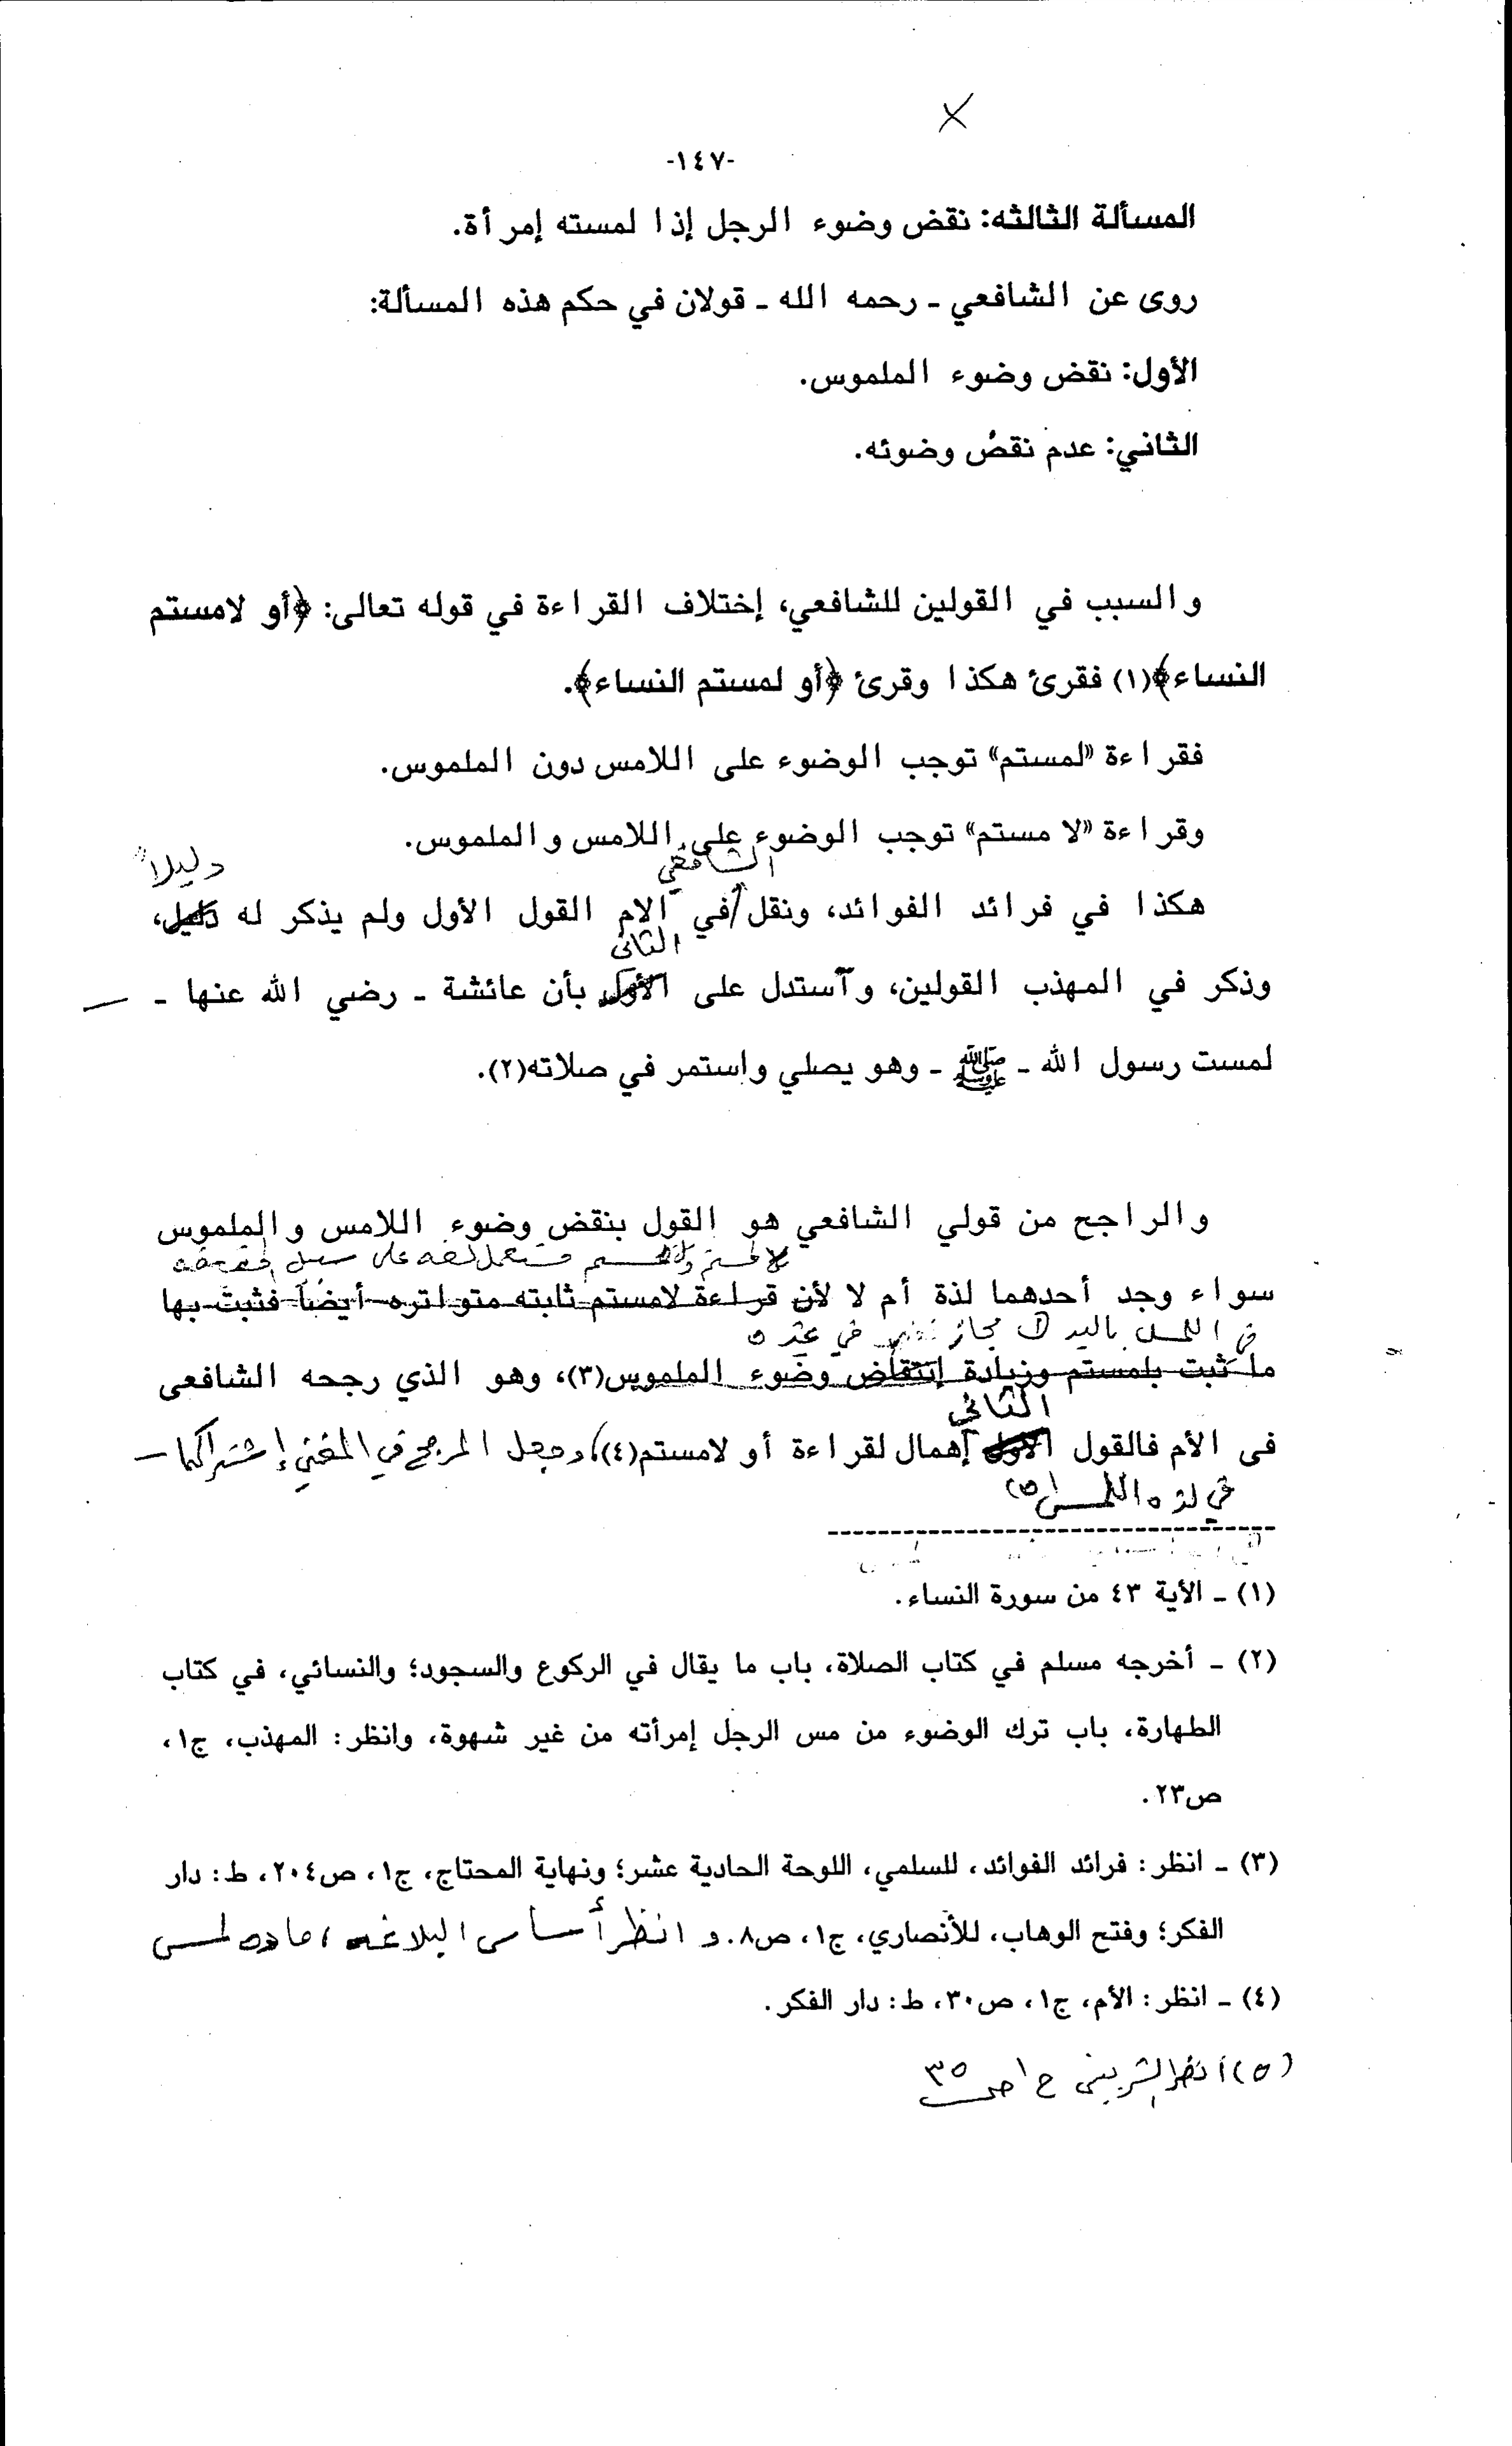 -١٤٧-
المسألة الثالثه: نقض وضوء الرجل إذا لمسته إمرأة.
روى عن الشافعي ـ رحمه الله ـ قولان في حكم هذه المسألة:
الأول: نقض وضوء الملموس.
الثاني: عدم نقض وضوئه.
والسبب في القولين للشافعي، إختلاف القراءة في قوله تعالى: ﴿أو لامستم
النساء﴾(١) فقرئ هكذا وقرئ ﴿أو لمستم النساء﴾.
فقراءة «لمستم» توجب الوضوء على اللامس دون الملموس.
وقراءة «لا مستم» توجب الوضوء على اللامس والملموس.
الشافعي دليلاً
هكذا في فرائد الفوائد، ونقل/في الام القول الأول ولم يذكر له دليل،
الثاني
وذكر في المهذب القولين، وآستدل على الأول بأن عائشة ـ رضي الله عنها ـ
لمست رسول الله ـ ﷺ ـ وهو يصلي واستمر في صلاته(٢).
والراجح من قولي الشافعي هو القول بنقض وضوء اللامس والملموس
على سبيل الحقيقة
سواء وجد أحدهما لذة أم لا لأن قراءة لامستم ثابته متواتره أيضاً فثبت بها
في اللمس باليد مجاز في غيره
ما ثبت بلمستم وزيادة إنتقاض وضوء الملموس(٣)، وهو الذي رجحه الشافعى
الثاني
فى الأم فالقول الأول إهمال لقراءة أو لامستم(٤)، وجعل المرجح في المغني إشتراكهما
في لذة اللمس(٥)
(١) ـ الأية ٤٣ من سورة النساء.
(٢) ـ أخرجه مسلم في كتاب الصلاة، باب ما يقال في الركوع والسجود؛ والنسائي، في كتاب
الطهارة، باب ترك الوضوء من مس الرجل إمرأته من غير شهوة، وانظر: المهذب، ج١،
ص٢٣.
(٣) ـ انظر: فرائد الفوائد، للسلمي، اللوحة الحادية عشر؛ ونهاية المحتاج، ج١، ص٢٠٤، ط: دار
الفكر؛ وفتح الوهاب، للأنصاري، ج١، ص٨. وانظر أساس البلاغه، ماده لمس
(٤) ـ انظر: الأم، ج١، ص٣٠، ط: دار الفكر.
(٥) أنظر الشربيني ج١ ص٣٥